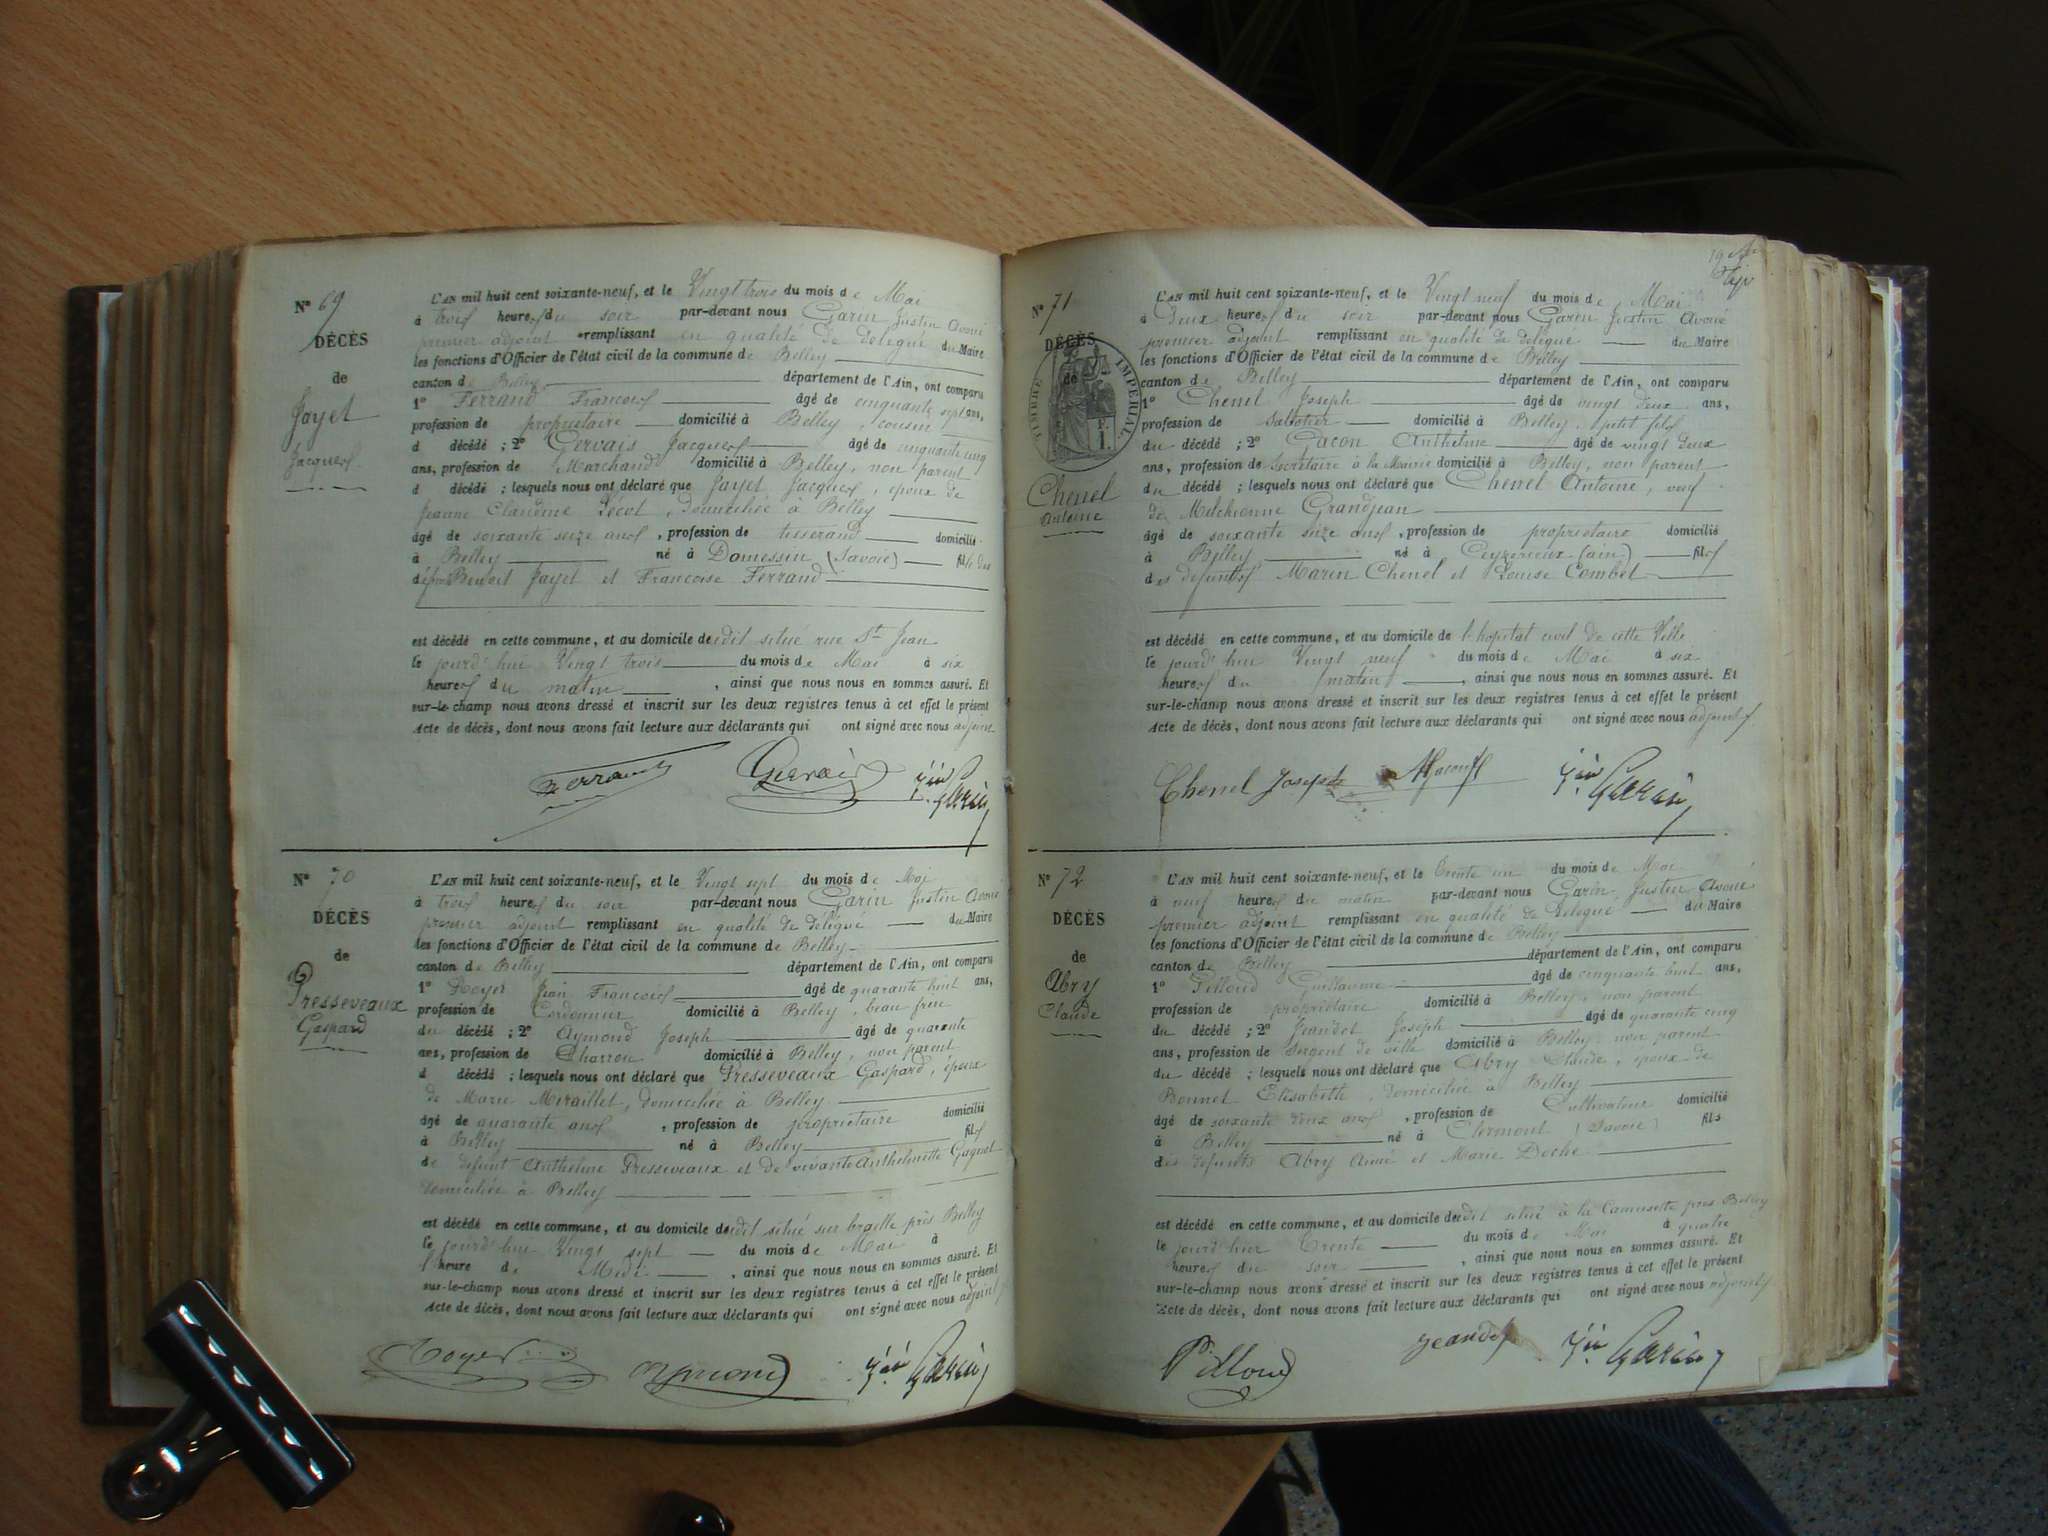 Nº 69
DÉCÈS
de
Jayet
Jacques
L'AN mil huit cent soixante-neuf, et le Vingt trois du mois de Mai
à trois heures du soir par-devant nous Garin Justin Avoué
premier adjoint remplissant en qualité de délégué du Maire
les fonctions d'Officier de l'état civil de la commune de Belley
canton de Belley département de l'Ain, ont comparu
1º Ferrand François âgé de cinquante sept ans,
profession de propriétaire domicilié à Belley, cousin
d décédé ; 2º Gervais Jacques âgé de cinquante cinq
ans, profession de Marchand domicilié à Belley, non parent
d décédé ; lesquels nous ont déclaré que Jayet Jacques, époux de
Jeanne Claudine Pécot, domiciliée à Belley
âgé de soixante seize ans, profession de tisserand domicilié
à Belley né à Domessin (Savoie) fils des
Benoit Jayet et Françoise Ferrand
est décédé en cette commune, et au domicile dudit situé rue St Jean
le jourd'hui Vingt trois du mois de Mai à six
heures du matin, ainsi que nous nous en sommes assuré. Et
sur-le-champ nous avons dressé et inscrit sur les deux registres tenus à cet effet le présent
Acte de décès, dont nous avons fait lecture aux déclarants qui ont signé avec nous adjoint
Ferrand Gervais Jin Garin
Nº 70
DÉCÈS
de
Presseveaux
Gaspard
L'AN mil huit cent soixante-neuf, et le Vingt sept du mois de Mai
à trois heures du soir par-devant nous Garin Justin Avoué
premier adjoint remplissant en qualité de délégué du Maire
les fonctions d'Officier de l'état civil de la commune de Belley
canton de Belley département de l'Ain, ont comparu
1º Jean François âgé de quarante huit ans,
profession de Cordonnier domicilié à Belley, beau frère
du décédé ; 2º Aymond Joseph âgé de quarante
ans, profession de Charron domicilié à Belley, non parent
d décédé ; lesquels nous ont déclaré que Presseveaux Gaspard, époux
de Marie Miraillet, domiciliée à Belley
âgé de quarante ans, profession de propriétaire domicilié
à Belley né à Belley fils
de défunt Anthelme Presseveaux et de vivante Anthelmette Gagnet
domiciliée à Belley
est décédé en cette commune, et au domicile dudit situé sur près Belley
le jourd'hui Vingt sept du mois de Mai à
l'heure de Midi, ainsi que nous nous en sommes assuré. Et
sur-le-champ nous avons dressé et inscrit sur les deux registres tenus à cet effet le présent
Acte de décès, dont nous avons fait lecture aux déclarants qui ont signé avec nous adjoint
Aymond Jin Garin
Nº 71
DÉCÈS
de
TIMBRE IMPÉRIAL
F.
1.
Chenel
Antoine
L'AN mil huit cent soixante-neuf, et le Vingt neuf du mois de Mai
à Deux heures du soir par-devant nous Garin Justin Avoué
premier adjoint remplissant en qualité de délégué du Maire
les fonctions d'Officier de l'état civil de la commune de Belley
canton de Belley département de l'Ain, ont comparu
1º Chenel Joseph âgé de vingt deux ans,
profession de Sabotier domicilié à Belley, petit fils
du décédé ; 2º Gacon Anthelme âgé de vingt deux
ans, profession de Secrétaire à la Mairie domicilié à Belley, non parent
du décédé ; lesquels nous ont déclaré que Chenel Antoine, veuf
de Melchionne Grandjean
âgé de soixante seize ans, profession de propriétaire domicilié
à Belley né à Ceyzerieux (ain) fils
des défunts Marin Chenel et Louise Combet
est décédé en cette commune, et au domicile de l'hopital civil de cette Ville
le jourd'hui Vingt neuf du mois de Mai à six
heures du matin, ainsi que nous nous en sommes assuré. Et
sur-le-champ nous avons dressé et inscrit sur les deux registres tenus à cet effet le présent
Acte de décès, dont nous avons fait lecture aux déclarants qui ont signé avec nous adjoint
Chenel Joseph AGacon Jin Garin
Nº 72
DÉCÈS
de
Abry
Claude
L'AN mil huit cent soixante-neuf, et le Trente un du mois de Mai
à neuf heures du matin par-devant nous Garin Justin Avoué
premier adjoint remplissant en qualité de délégué du Maire
les fonctions d'Officier de l'état civil de la commune de Belley
canton de Belley département de l'Ain, ont comparu
1º Pilloud Guillaume âgé de cinquante huit ans,
profession de propriétaire domicilié à Belley, non parent
du décédé ; 2º Jeandet Joseph âgé de quarante cinq
ans, profession de Sergent de ville domicilié à Belley non parent
du décédé ; lesquels nous ont déclaré que Abry Claude, époux de
Bonnet Elisabette, domiciliée à Belley
âgé de soixante deux ans, profession de Cultivateur domicilié
à Belley né à Clermont (Savoie) fils
des défunts Abry Aimé et Marie Doche
est décédé en cette commune, et au domicile dudit situé à la Camusette près Belley
le jourd'hier Trente du mois de Mai à quatre
heures du soir, ainsi que nous nous en sommes assuré. Et
sur-le-champ nous avons dressé et inscrit sur les deux registres tenus à cet effet le présent
Acte de décès, dont nous avons fait lecture aux déclarants qui ont signé avec nous adjoint
Pilloud Jeandet Jin Garin